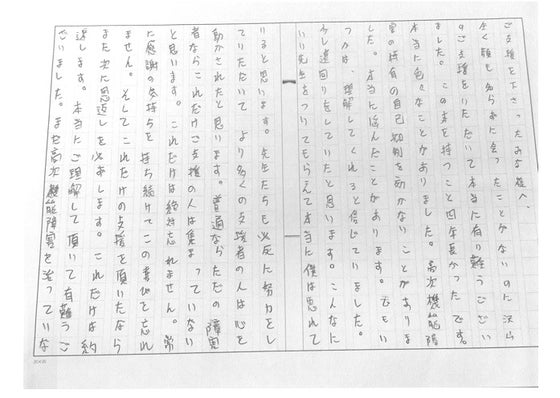 ご支援を下さったみな様へ、
全く顔も知らぬ会ったことがないのに沢山
のご支援をいただいて本当に有り難うござい
ました。この本を持つこと四年長かったです。
本当に色々なことがありました。高次機能障
害の特有の自己抑制を効かないことがありま
した。本当に悩んだことがあります。でもい
つかは、理解してくれると信じていました。
少し遠回りをしていたと思います。こんなに
いい先生をつけてもらえて本当に僕は恵れて
いると思います。先生たちも必死に努力をし
ていただいて、より多くの支援者の人は心を
動かされたと思います。普通ならただの障害
者ならこれだけご支援の人は集まっていない
と思います。これだけは絶対忘れません。常
に感謝の気持ちを持ち続けてこの書地を忘れ
ません。そしてこれだけの支援を頂いたなら
また次に恩返しを必ずします。これだけは約
束します。本当にご理解して頂いて有難うご
ざいました。まだ高次機能障害を治っていな